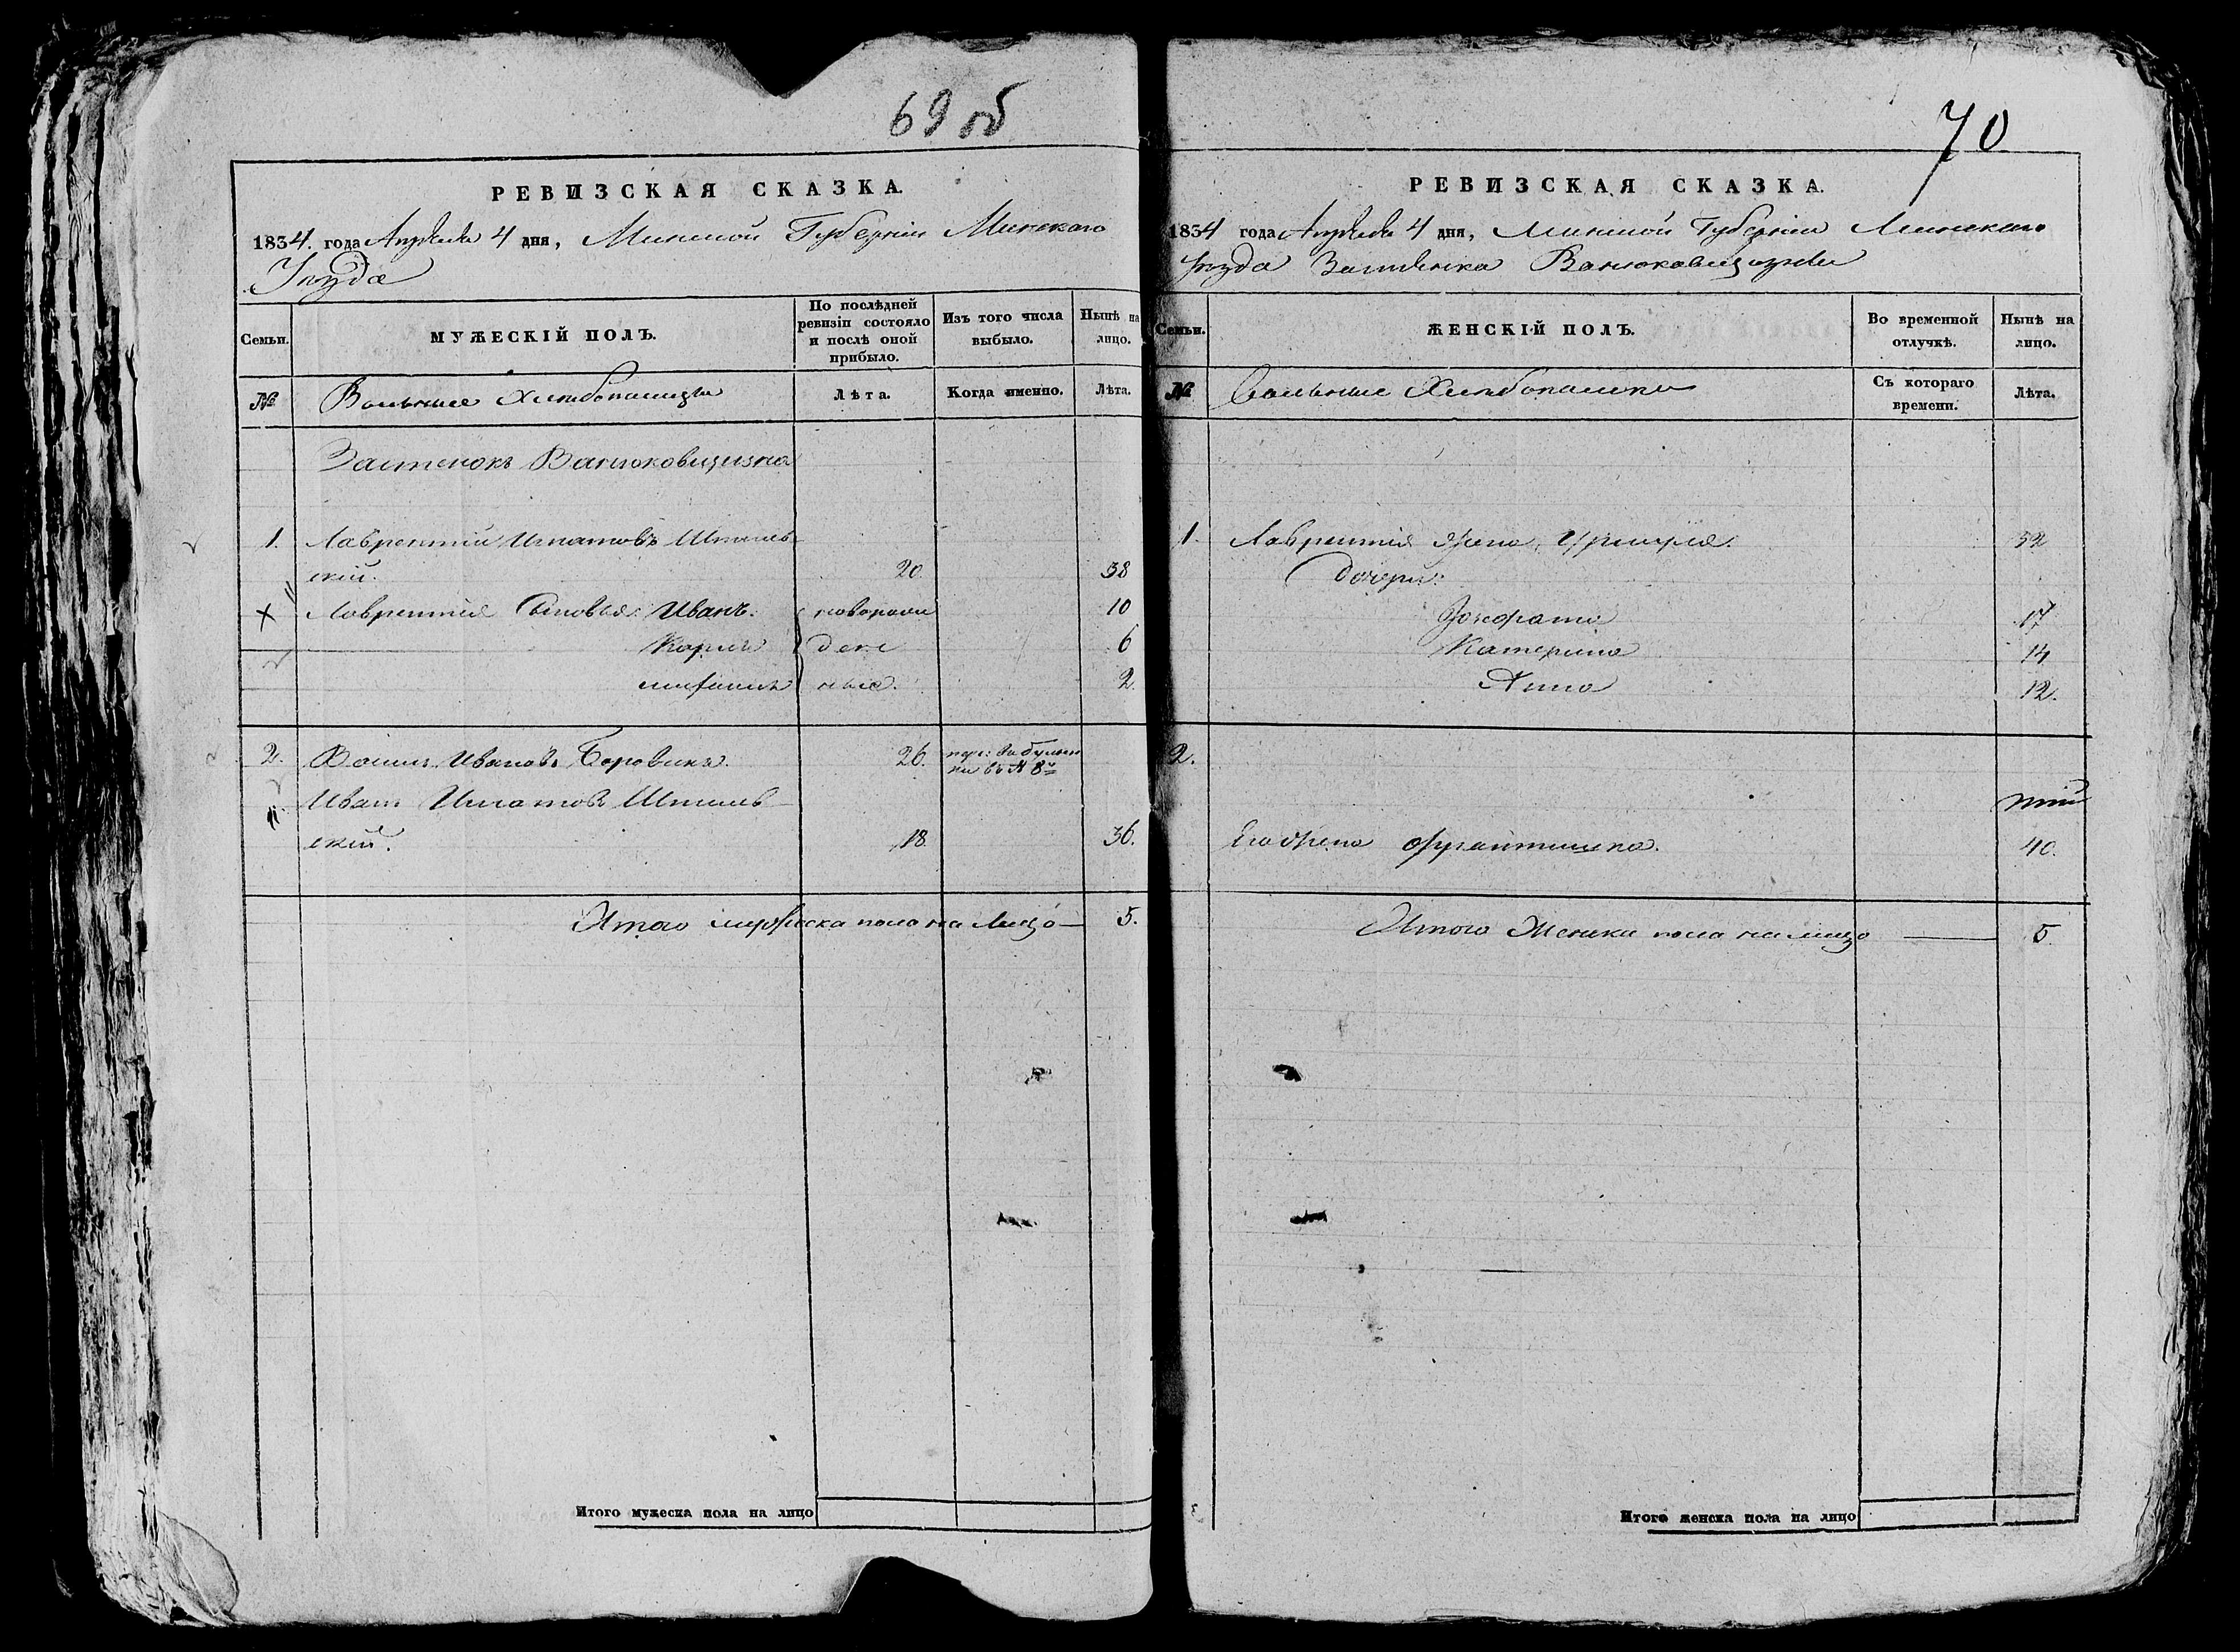 69 об
РЕВИЗСКАЯ СКАЗКА.
1834. года Апреля 4 дня, Минской Губерніи Минскаго
Уѣзда
Семьи.
МУЖЕСКІЙ ПОЛЪ.
По послѣдней ревизіи состояло и послѣ оной прибыло.
Изъ того числа выбыло.
Нынѣ на лицо.
№
Вольные Хлѣбопашцы
Лѣта.
Когда именно.
Лѣта.
Застенокъ Ванюковщизна
1. Лаврентій Игнатовъ
скій. 20. 38
Лаврентія Сыновья: Иванъ. новорож 10
Карлъ дене 6
ные. 2.
2. Ивановъ Боровикъ. 26. въ № 8й
Иванъ Игнатовъ
скій. 18. 36.
Итого мужеска пола на Лицо — 5.
Итого мужеска пола на лицо
70
РЕВИЗСКАЯ СКАЗКА.
1834 года Апреля 4 дня, Минской Губерніи Минскаго
Уѣзда Застѣнка Ванюковщизны
Семьи.
ЖЕНСКІЙ ПОЛЪ.
Во временной отлучкѣ.
Нынѣ на лицо.
№
Вольные Хлѣбопашцы
Съ котораго времени.
Лѣта.
1. Лаврентія жена, Уршуля. 32
дочери:
17
Катерина 14
Анна 12.
2.
Его жена Франтишка. 40.
Итого Женска пола на лицо — 5.
Итого женска пола на лицо